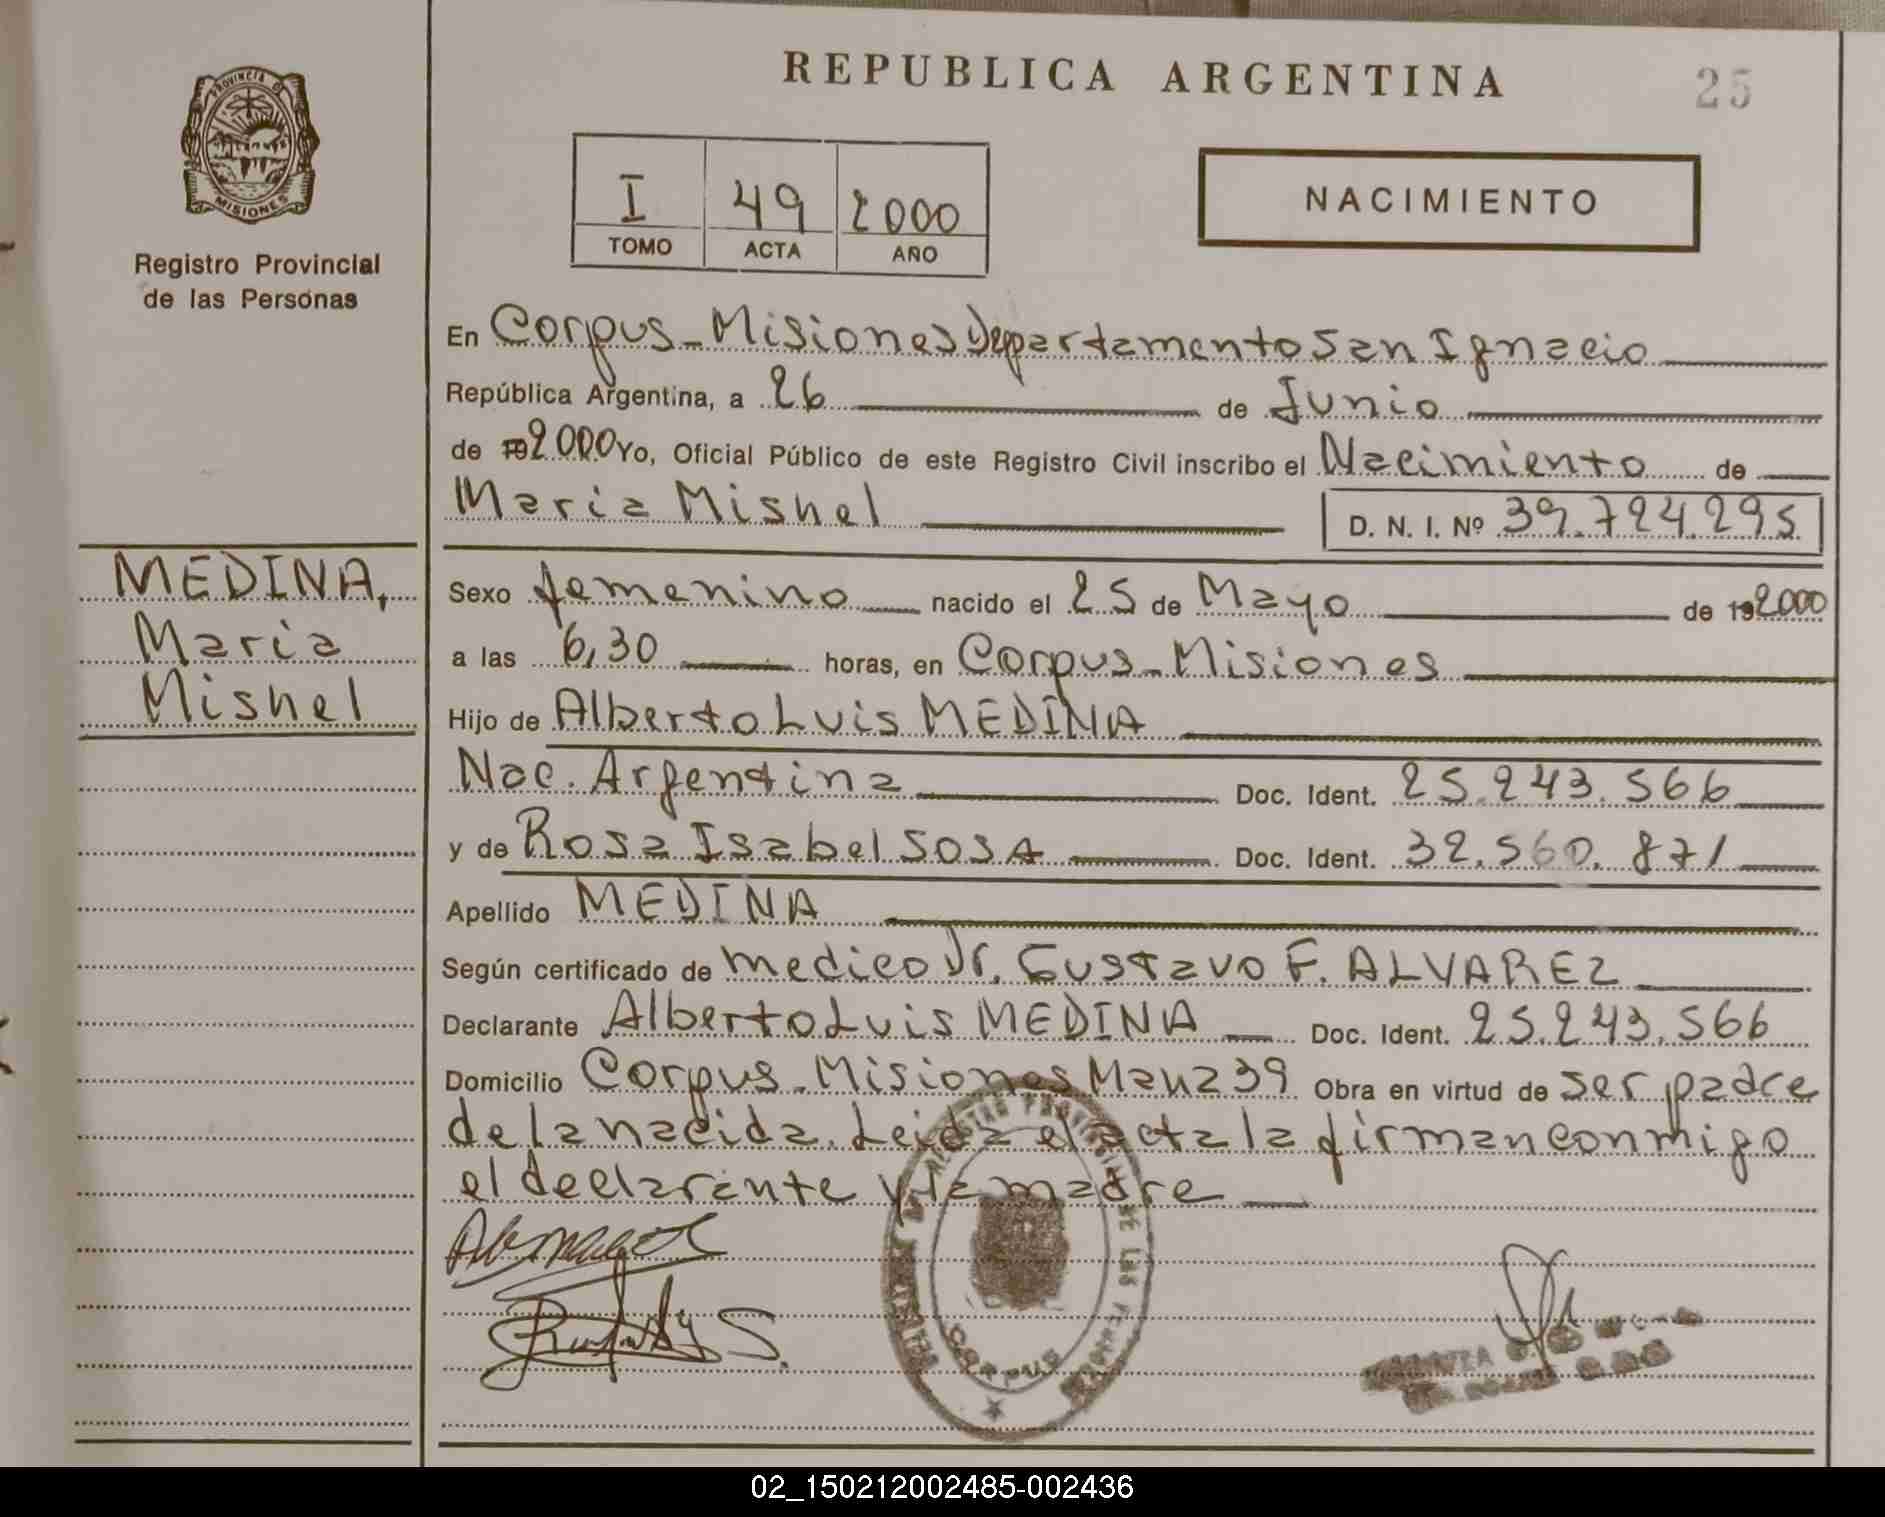 REPUBLICA ARGENTINA
25
PROVINCIA D
MISIONES
Registro Provincial
de las Personas
I 49 2000
TOMO ACTA AÑO
NACIMIENTO
En Corpus - Misiones Departamento San Ignacio
República Argentina, a 26 de Junio
de 19 2000 Yo, Oficial Público de este Registro Civil inscribo el Nacimiento de
Maria Mishel D. N. I. Nº 39.724.295
MEDINA,
Maria
Mishel
Sexo femenino nacido el 25 de Mayo de 19 2000
a las 6,30 horas, en Corpus - Misiones
Hijo de Alberto Luis MEDINA
Nac. Argentina Doc. Ident. 25.243.566
y de Rosa Isabel SOSA Doc. Ident. 32.560.871
Apellido MEDINA
Según certificado de medico Dr. Gustavo F. ALVAREZ
Declarante Alberto Luis MEDINA Doc. Ident. 25.243.566
Domicilio Corpus - Misiones Manz 39 Obra en virtud de ser padre
de la nacida. Leida el acta la firman conmigo
el declarante y la madre
CORPUS
02_150212002485-002436